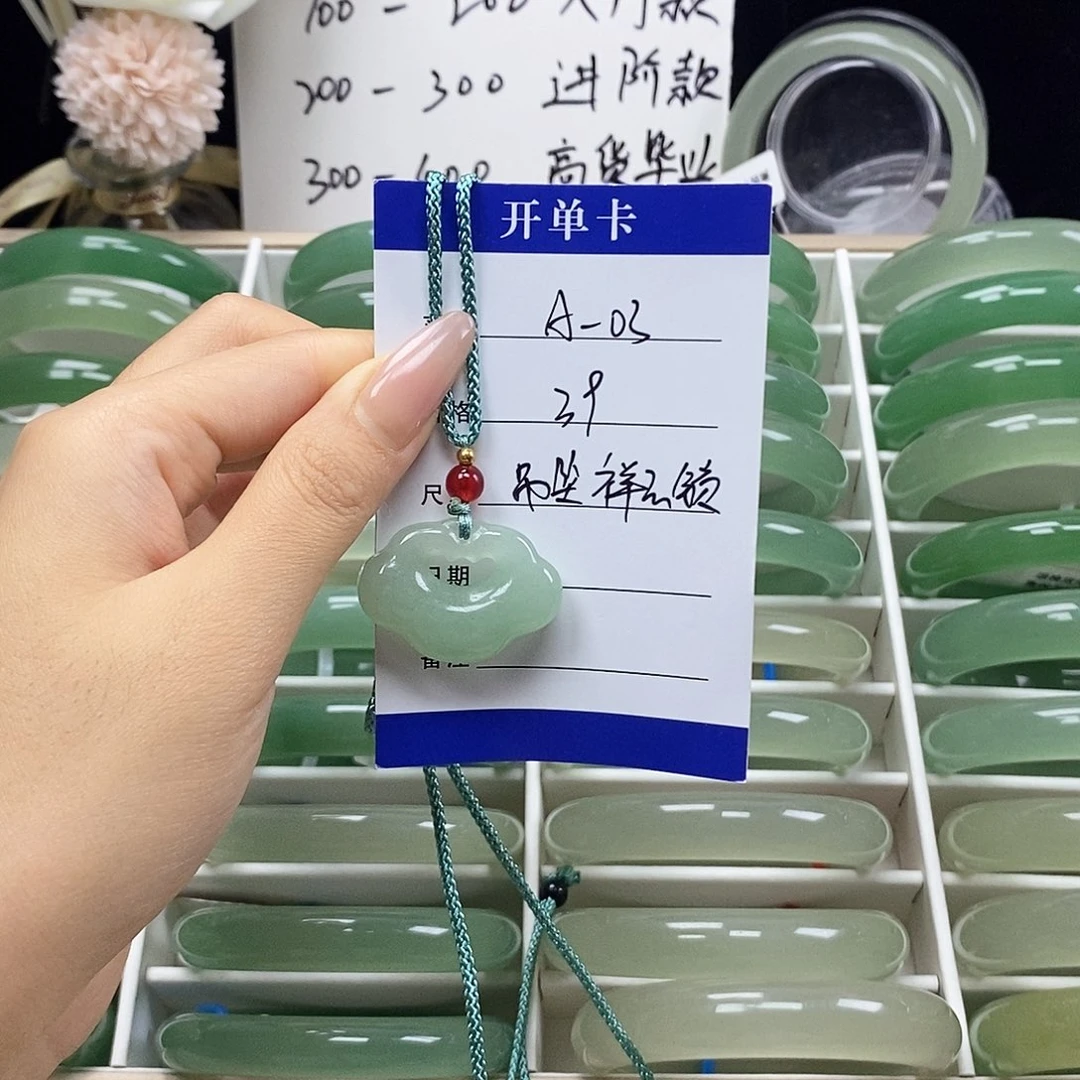 100 - 200 入门款
200 - 300 进阶款
300 - 600 高货毕业
开单卡
A-03
格 39
尺 吊坠 祥云锁
期
备注